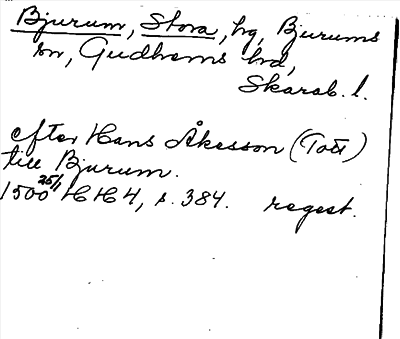 Bjurum, Stora, hg, Bjurums
sn, Gudhems hd,
Skarab. l.
efter Hans Åkesson (Tott)
till Bjurum.
1500 25/1 HH4, s. 384. regest.